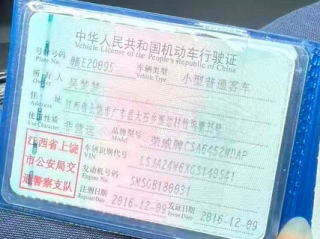 中华人民共和国机动车行驶证
Vehicle License of the People's Republic of China
号牌号码 赣E20995 车辆类型 小型普通客车
Plate No. Vehicle Type
所有人 吴梦梦
Owner
住址 江西省上饶市广丰县大石乡
Address
使用性质 非营运 品牌型号 荣威牌CSA6452NDAP
Use Character Model
江西省上饶
市公安局交
通警察支队
车辆识别代号
VIN
发动机号码
Engine No.
注册日期 2016-12-09 发证日期 2016-12-09
Register Date Issue Date